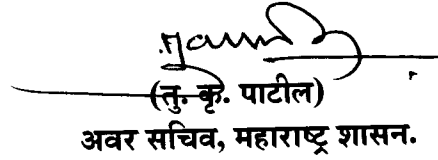 (तु. कृ. पाटील)
अवर सचिव, महाराष्ट्र शासन.